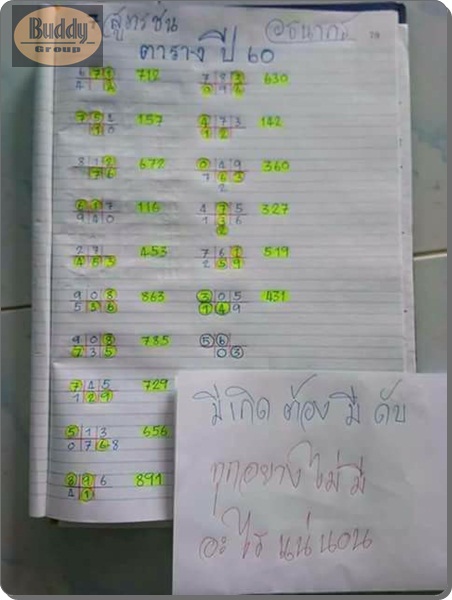 Buddy
Group
สูตรชน อธนากร
ตาราง ปี 60
6 7 1 712 7 8 3 630
4 2 0 9 6
7 5 1 157 4 7 3 142
1 0 1 2
8 1 2 672 0 4 9 360
7 6 7 6 3
2
6 1 7 116 4 7 5 327
9 4 0 1 3 6
2
2 7 453 7 6 1 519
4 5 3 2 5 9
9 0 8 863 3 0 5 431
5 3 6 1 4 9
9 0 8 735 5 6
7 3 5 0 3
7 4 5 729
1 2 9
5 1 3 656
0 7 6 8
8 9 6 891
4 1
มีเกิด ต้อง มี ดับ
ทุกอย่าง ไม่ มี
อะไร แน่ นอน